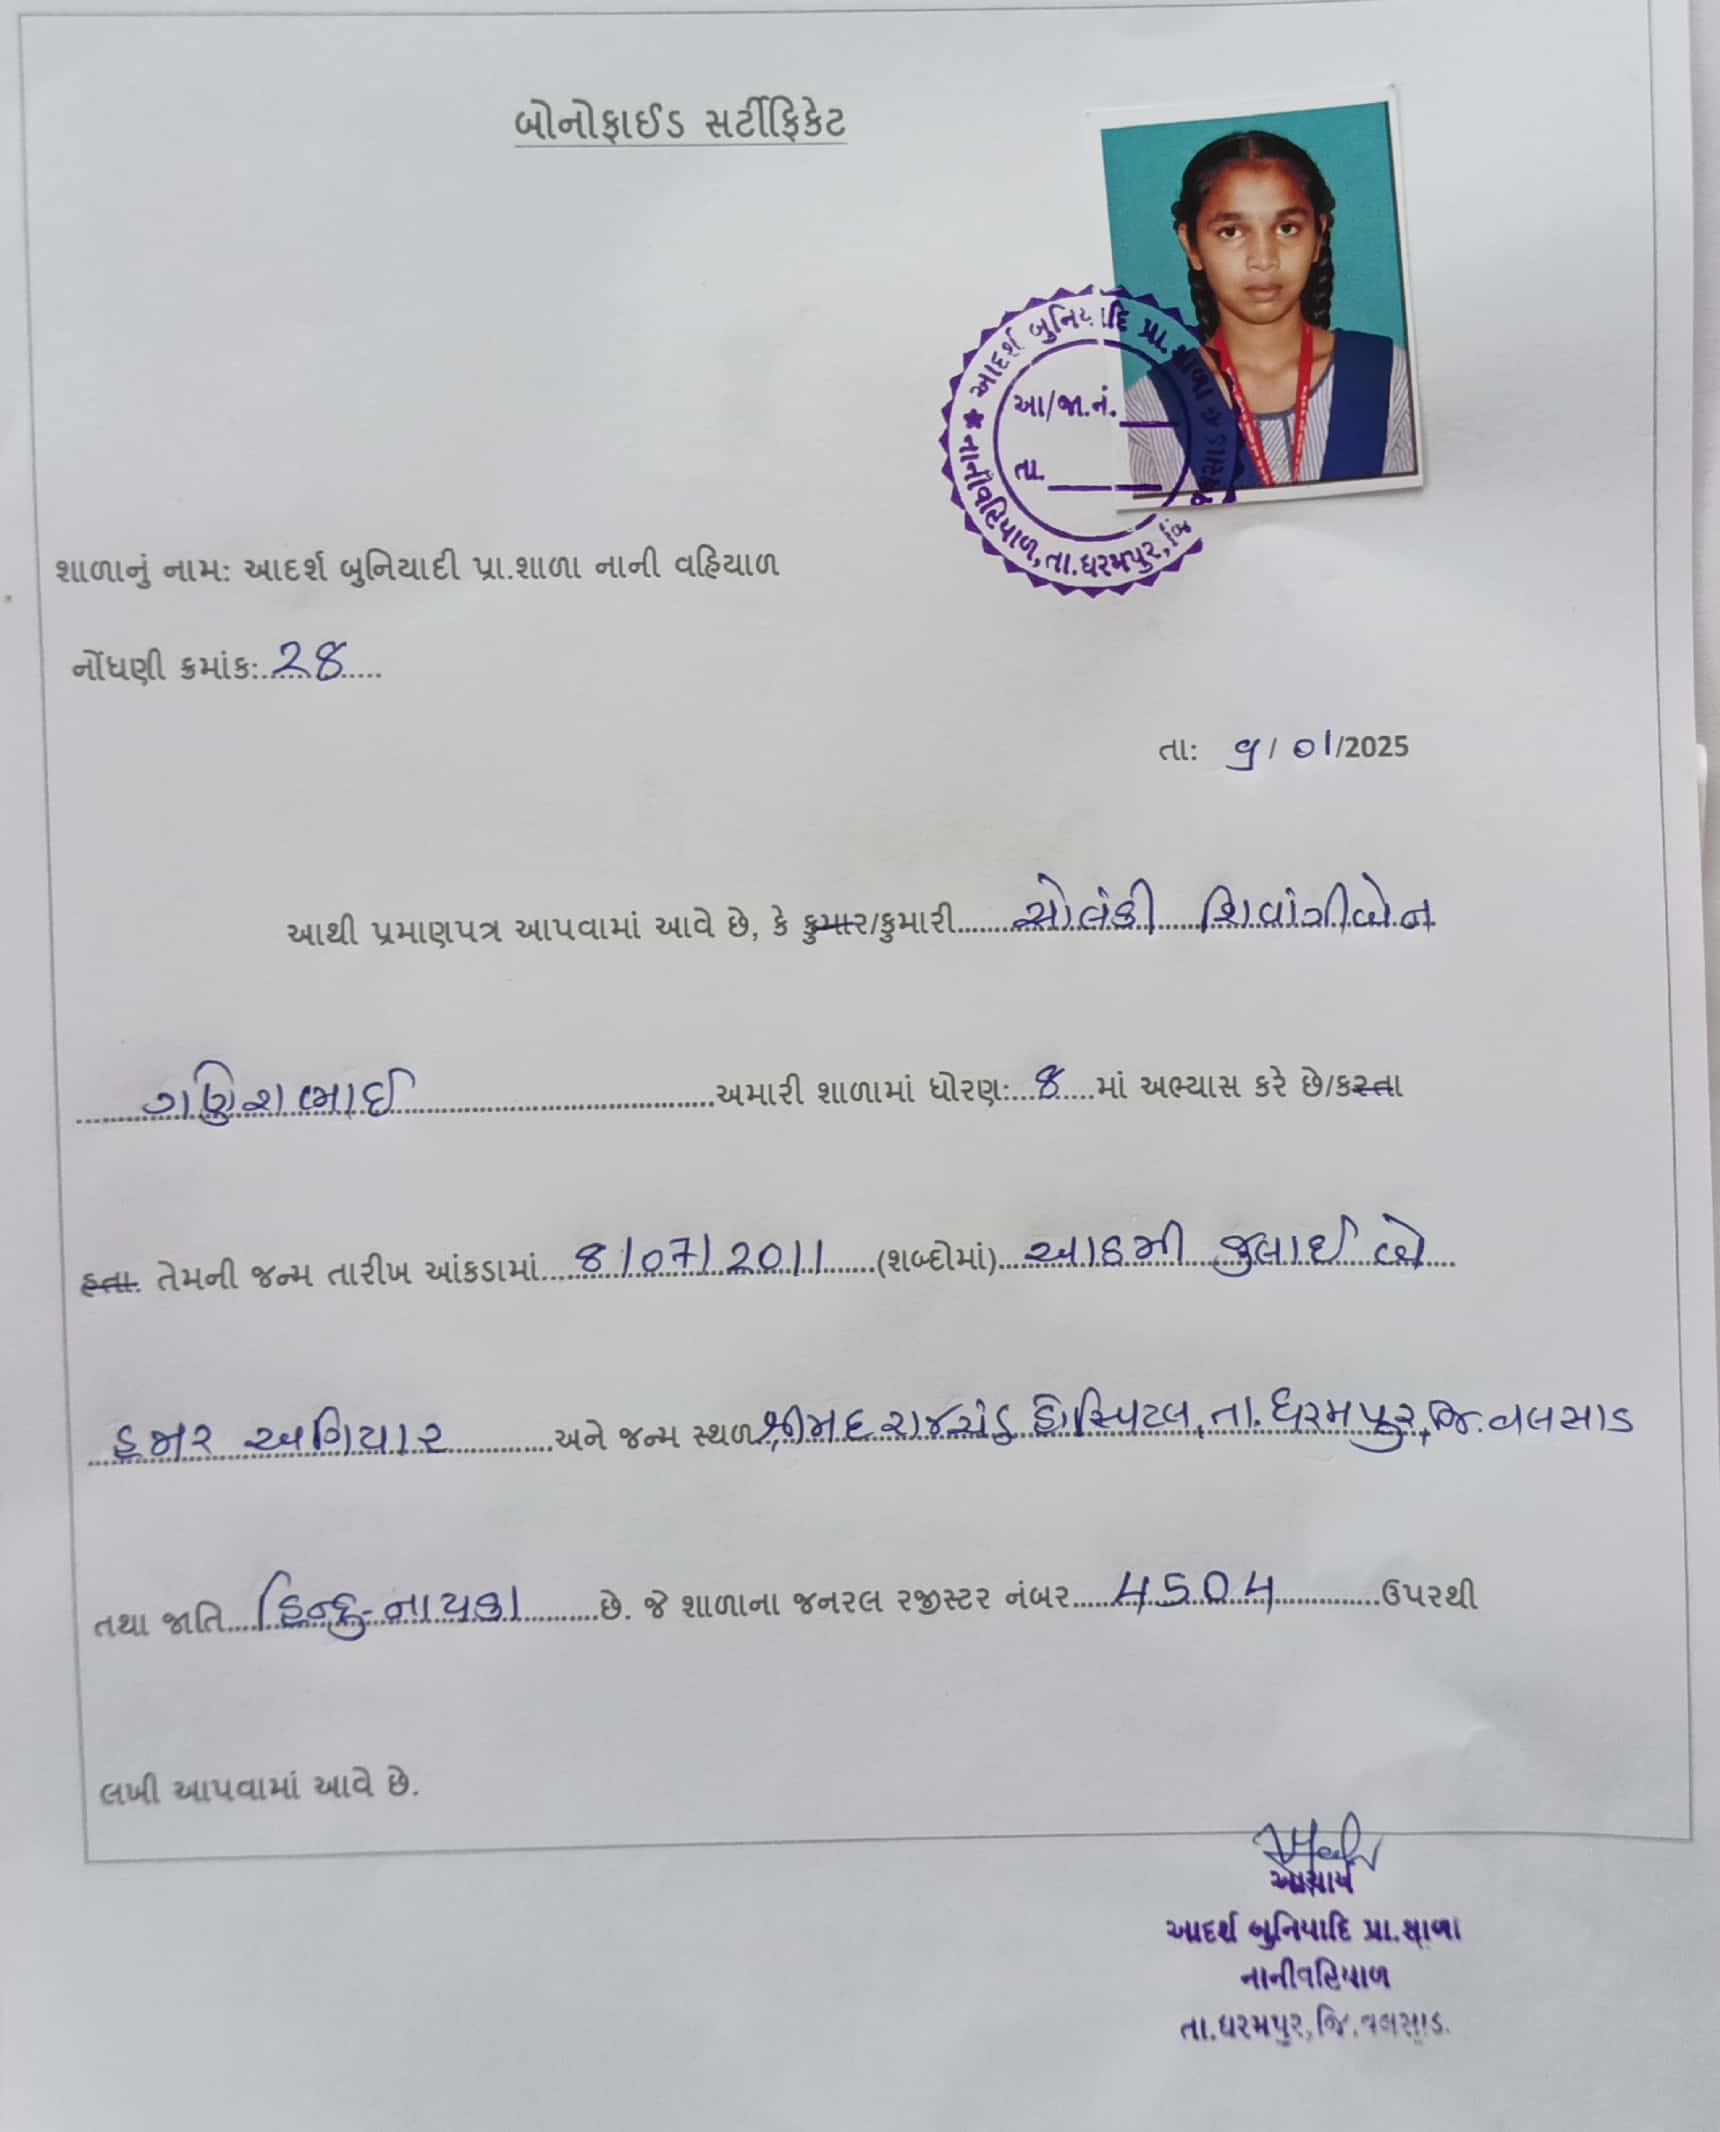 બોનોફાઈડ સર્ટીફિકેટ
આદર્શ બુનિયાદિ પ્રા. શાળા
નાનીવહિયાળ, તા.ધરમપુર, જિ. વલસાડ
આ/જા.નં.
તા.
શાળાનું નામ: આદર્શ બુનિયાદી પ્રા.શાળા નાની વહિયાળ
નોંધણી ક્રમાંક: 28
તા: 9/01/2025
આથી પ્રમાણપત્ર આપવામાં આવે છે, કે કુમાર/કુમારી સોલંકી શિવાંગીબેન
ગણેશભાઈ અમારી શાળામાં ધોરણ: 8 માં અભ્યાસ કરે છે/કરતા
હતા. તેમની જન્મ તારીખ આંકડામાં 8/07/2011 (શબ્દોમાં) આઠમી જુલાઈ બે
હજાર અગિયાર અને જન્મ સ્થળ શ્રીમદ રાજચંદ્ર હોસ્પિટલ, તા.ધરમપુર, જિ.વલસાડ
તથા જાતિ હિન્દુ-નાયકા છે. જે શાળાના જનરલ રજીસ્ટર નંબર 4504 ઉપરથી
લખી આપવામાં આવે છે.
આચાર્ય
આદર્શ બુનિયાદિ પ્રા.શાળા
નાનીવહિયાળ
તા.ધરમપુર, જિ.વલસાડ.